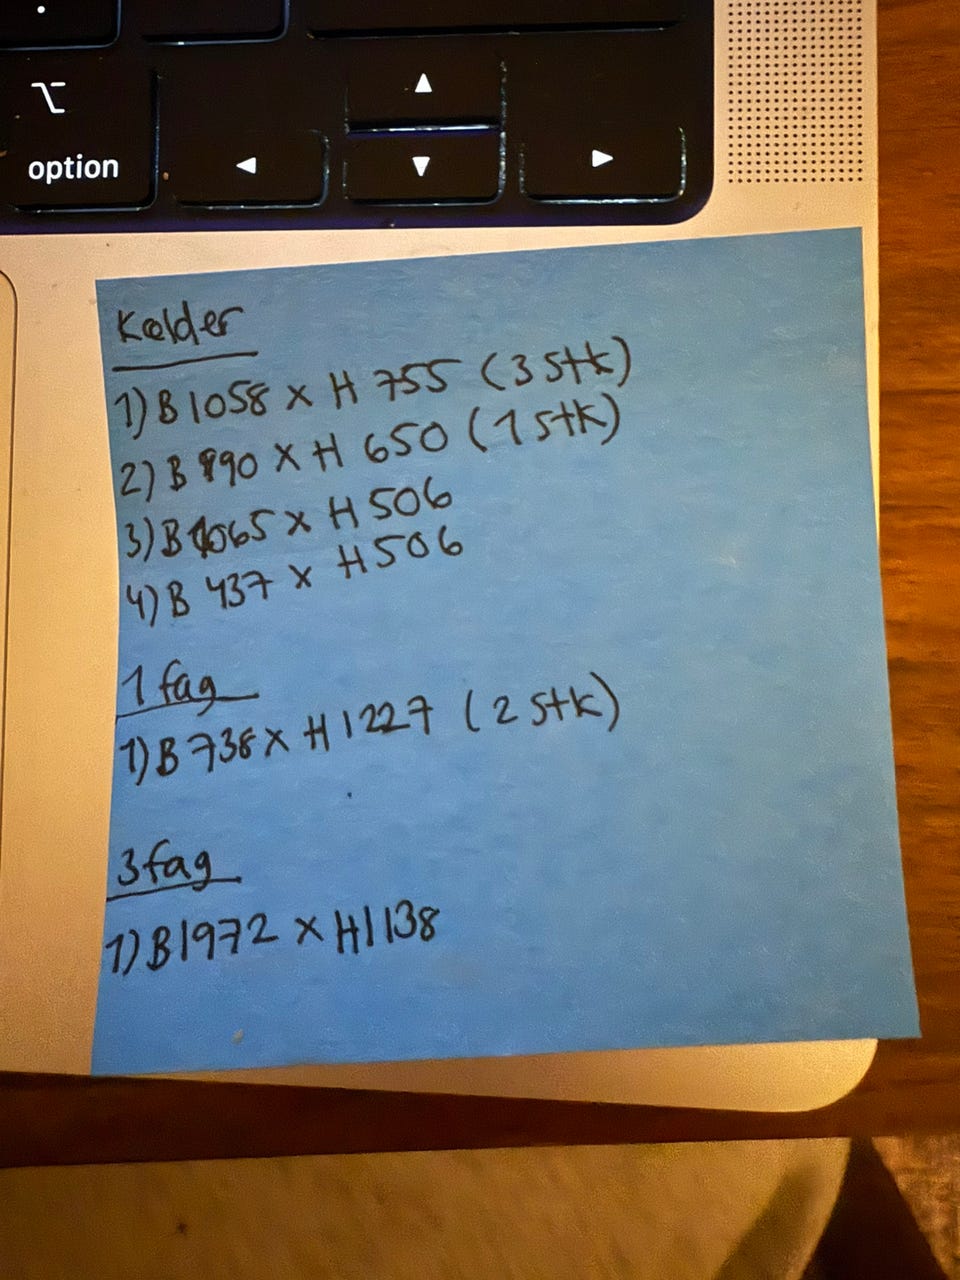 option
Kælder
1) B 1058 x H 755 (3 stk)
2) B 890 x H 650 (1 stk)
3) B 1065 x H 506
4) B 437 x H 506
1 fag
1) B 738 x H 1227 (2 stk)
3 fag
1) B 1972 x H 1138